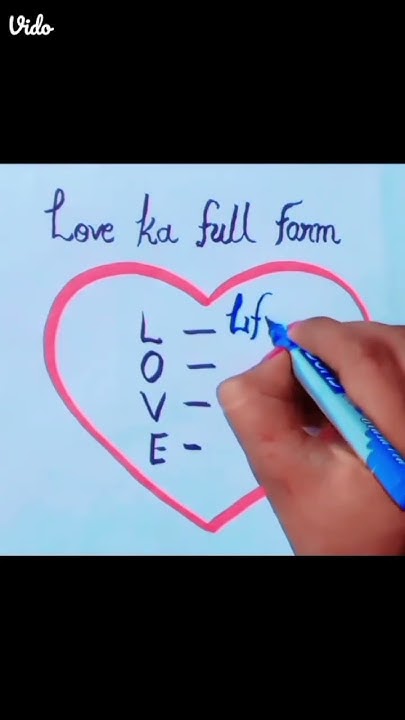 Vido
Love ka full farm
L – Lif
O –
V –
E -